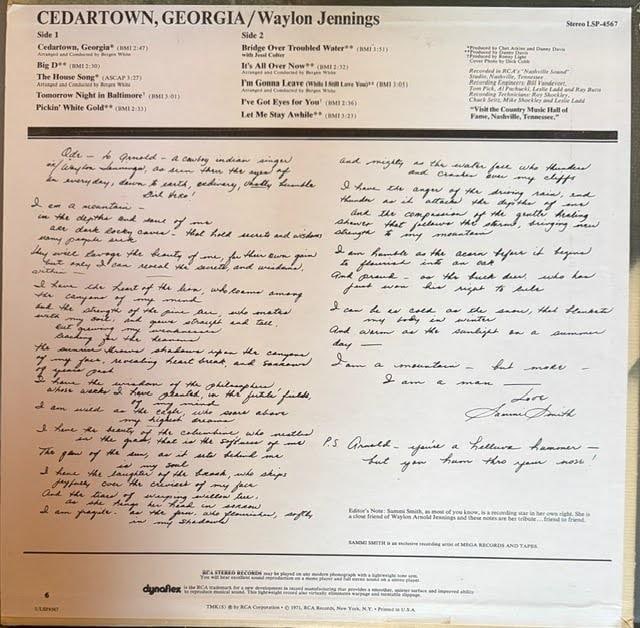 CEDARTOWN, GEORGIA/Waylon Jennings
Stereo LSP-4567
Side 1
Cedartown, Georgia* (BMI 2:47)
Arranged and Conducted by Bergen White
Big D** (BMI 2:30)
The House Song* (ASCAP 3:27)
Arranged and Conducted by Bergen White
Tomorrow Night in Baltimore† (BMI 3:01)
Pickin' White Gold** (BMI 2:33)
Side 2
Bridge Over Troubled Water** (BMI 3:51)
with Jessi Colter
It's All Over Now** (BMI 2:32)
Arranged and Conducted by Bergen White
I'm Gonna Leave (While I Still Love You)** (BMI 3:05)
Arranged and Conducted by Bergen White
I've Got Eyes for You† (BMI 2:36)
Let Me Stay Awhile** (BMI 3:23)
*Produced by Chet Atkins and Danny Davis
**Produced by Danny Davis
†Produced by Ronny Light
Cover Photo by Dick Cobb
Recorded in RCA's "Nashville Sound"
Studio, Nashville, Tennessee
Recording Engineers: Bill Vandevort,
Tom Pick, Al Pachucki, Leslie Ladd and Roy Butts
Recording Technicians: Roy Shockley,
Chuck Seitz, Mike Shockley and Leslie Ladd
"Visit the Country Music Hall
of Fame, Nashville, Tennessee."
Ode - to Arnold - a cowboy indian singer
Waylon Jennings, as seen thru the eyes of
an everyday, down to earth, ordinary, humble
Girl Hero!
I am a mountain -
in the depths and soul of me
are dark rocky caves - that hold secrets and wisdoms
many people seek
They will ravage the beauty of me, for their own gain
but only I can reveal the secrets, and wisdoms,
within -
I have the heart of the lion, who roams among
the canyons of my mind
and the strength of the pine tree, who mates
with my soil, and grows straight and tall,
reaching for the heavens
The sunrise throws shadows upon the canyons
of my face, revealing heart break, and sorrows
of years past
I have the wisdom of the philosophers,
whose works I have planted, in the fertile fields,
of my mind
I am wild as the eagle, who soars above
my highest dreams
I have the beauty of the columbine who nestles
in the grass, that is the softness of me
The glow of the sun, as it sets behind me
is my soul
I have the laughter of the brook, who skips
joyfully over the crevices of my face
And the tears of weeping willow tree,
as she hangs her head in sorrow
I am fragile - as the fern who flourishes, softly
in my shadows
and mighty as the water fall who thunders
and crashes over my cliffs
I have the anger of the driving rain, and
thunder as it attacks the depths of me
And the compassion of the gentle healing
shower that follows the storm, bringing new
strength to my mountain
I am humble as the acorn before it begins
to flourish into an oak
And proud - as the buck deer, who has
just won his right to rule
I can be as cold as the snow, that blankets
my body in winter
And warm as the sunlight on a summer
day -
I am a mountain - but more -
I am a man -
Love
Sammi Smith
P.S. Arnold - you're a helluva hummer -
but you hum thru your nose!
Editor's Note: Sammi Smith, as most of you know, is a recording star in her own right. She is
a close friend of Waylon Arnold Jennings and these notes are her tribute... friend to friend.
SAMMI SMITH is an exclusive recording artist of MEGA RECORDS AND TAPES.
RCA STEREO RECORDS may be played on any modern phonograph with a lightweight tone arm.
You will hear excellent sound reproduction on a mono player and full stereo sound on a stereo player.
dynaflex is the RCA trademark for a new development in record manufacturing that provides a smoother, quieter surface and improved ability
to reproduce musical sound. This lightweight record also virtually eliminates warpage and turntable slippage.
6
TMK(S) ® by RCA Corporation • © 1971, RCA Records, New York, N.Y. • Printed in U.S.A.